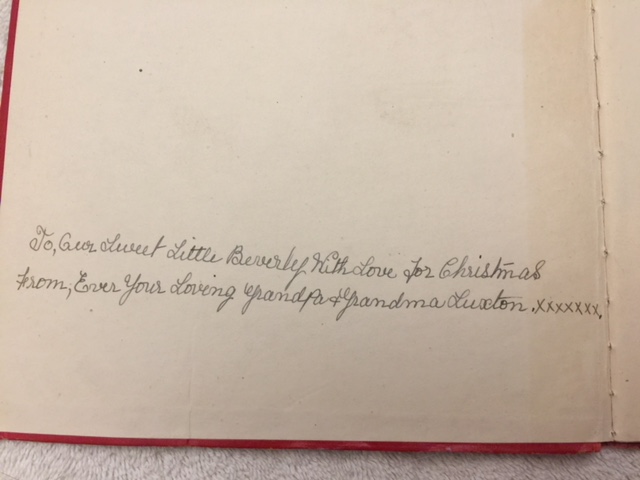 To, Our Sweet Little Beverly With Love for Christmas
From, Ever Your Loving Grandpa & Grandma Luxton. xxxxxxx.